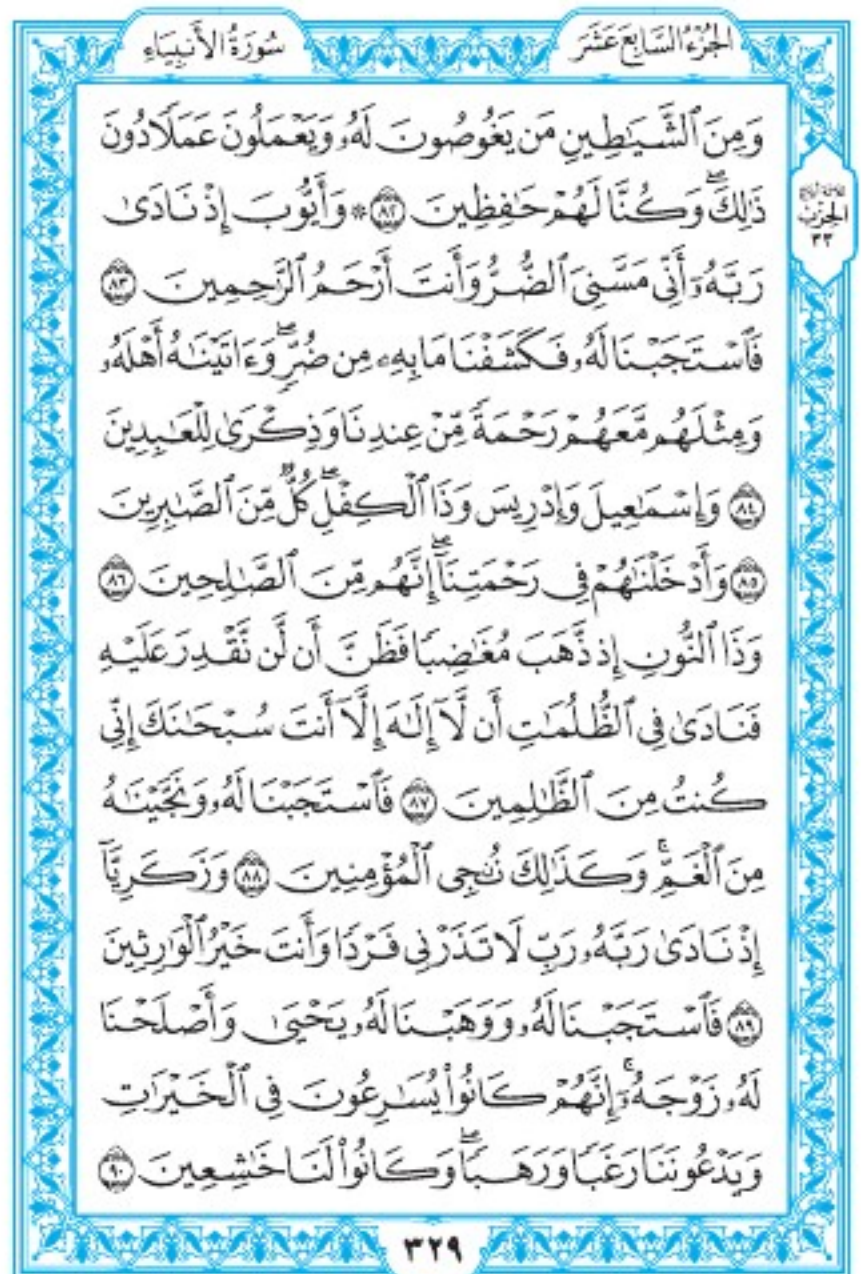 الجُزْءُ السَّابِعَ عَشَرَ
سُورَةُ الأَنبِيَاءِ
وَمِنَ ٱلشَّيَٰطِينِ مَن يَغُوصُونَ لَهُۥ وَيَعْمَلُونَ عَمَلًا دُونَ
ذَٰلِكَۖ وَكُنَّا لَهُمْ حَٰفِظِينَ ۝٨٢ ۞ وَأَيُّوبَ إِذْ نَادَىٰ
رَبَّهُۥٓ أَنِّي مَسَّنِيَ ٱلضُّرُّ وَأَنتَ أَرْحَمُ ٱلرَّٰحِمِينَ ۝٨٣
فَٱسْتَجَبْنَا لَهُۥ فَكَشَفْنَا مَا بِهِۦ مِن ضُرٍّۖ وَءَاتَيْنَٰهُ أَهْلَهُۥ
وَمِثْلَهُم مَّعَهُمْ رَحْمَةً مِّنْ عِندِنَا وَذِكْرَىٰ لِلْعَٰبِدِينَ
۝٨٤ وَإِسْمَٰعِيلَ وَإِدْرِيسَ وَذَا ٱلْكِفْلِۖ كُلٌّ مِّنَ ٱلصَّٰبِرِينَ
۝٨٥ وَأَدْخَلْنَٰهُمْ فِي رَحْمَتِنَآۖ إِنَّهُم مِّنَ ٱلصَّٰلِحِينَ ۝٨٦
وَذَا ٱلنُّونِ إِذ ذَّهَبَ مُغَٰضِبًا فَظَنَّ أَن لَّن نَّقْدِرَ عَلَيْهِ
فَنَادَىٰ فِي ٱلظُّلُمَٰتِ أَن لَّآ إِلَٰهَ إِلَّآ أَنتَ سُبْحَٰنَكَ إِنِّي
كُنتُ مِنَ ٱلظَّٰلِمِينَ ۝٨٧ فَٱسْتَجَبْنَا لَهُۥ وَنَجَّيْنَٰهُ
مِنَ ٱلْغَمِّۚ وَكَذَٰلِكَ نُـۨجِي ٱلْمُؤْمِنِينَ ۝٨٨ وَزَكَرِيَّآ
إِذْ نَادَىٰ رَبَّهُۥ رَبِّ لَا تَذَرْنِي فَرْدًا وَأَنتَ خَيْرُ ٱلْوَٰرِثِينَ
۝٨٩ فَٱسْتَجَبْنَا لَهُۥ وَوَهَبْنَا لَهُۥ يَحْيَىٰ وَأَصْلَحْنَا
لَهُۥ زَوْجَهُۥٓۚ إِنَّهُمْ كَانُوا۟ يُسَٰرِعُونَ فِي ٱلْخَيْرَٰتِ
وَيَدْعُونَنَا رَغَبًا وَرَهَبًاۖ وَكَانُوا۟ لَنَا خَٰشِعِينَ ۝٩٠
الحِزْبُ
٣٣
٣٢٩